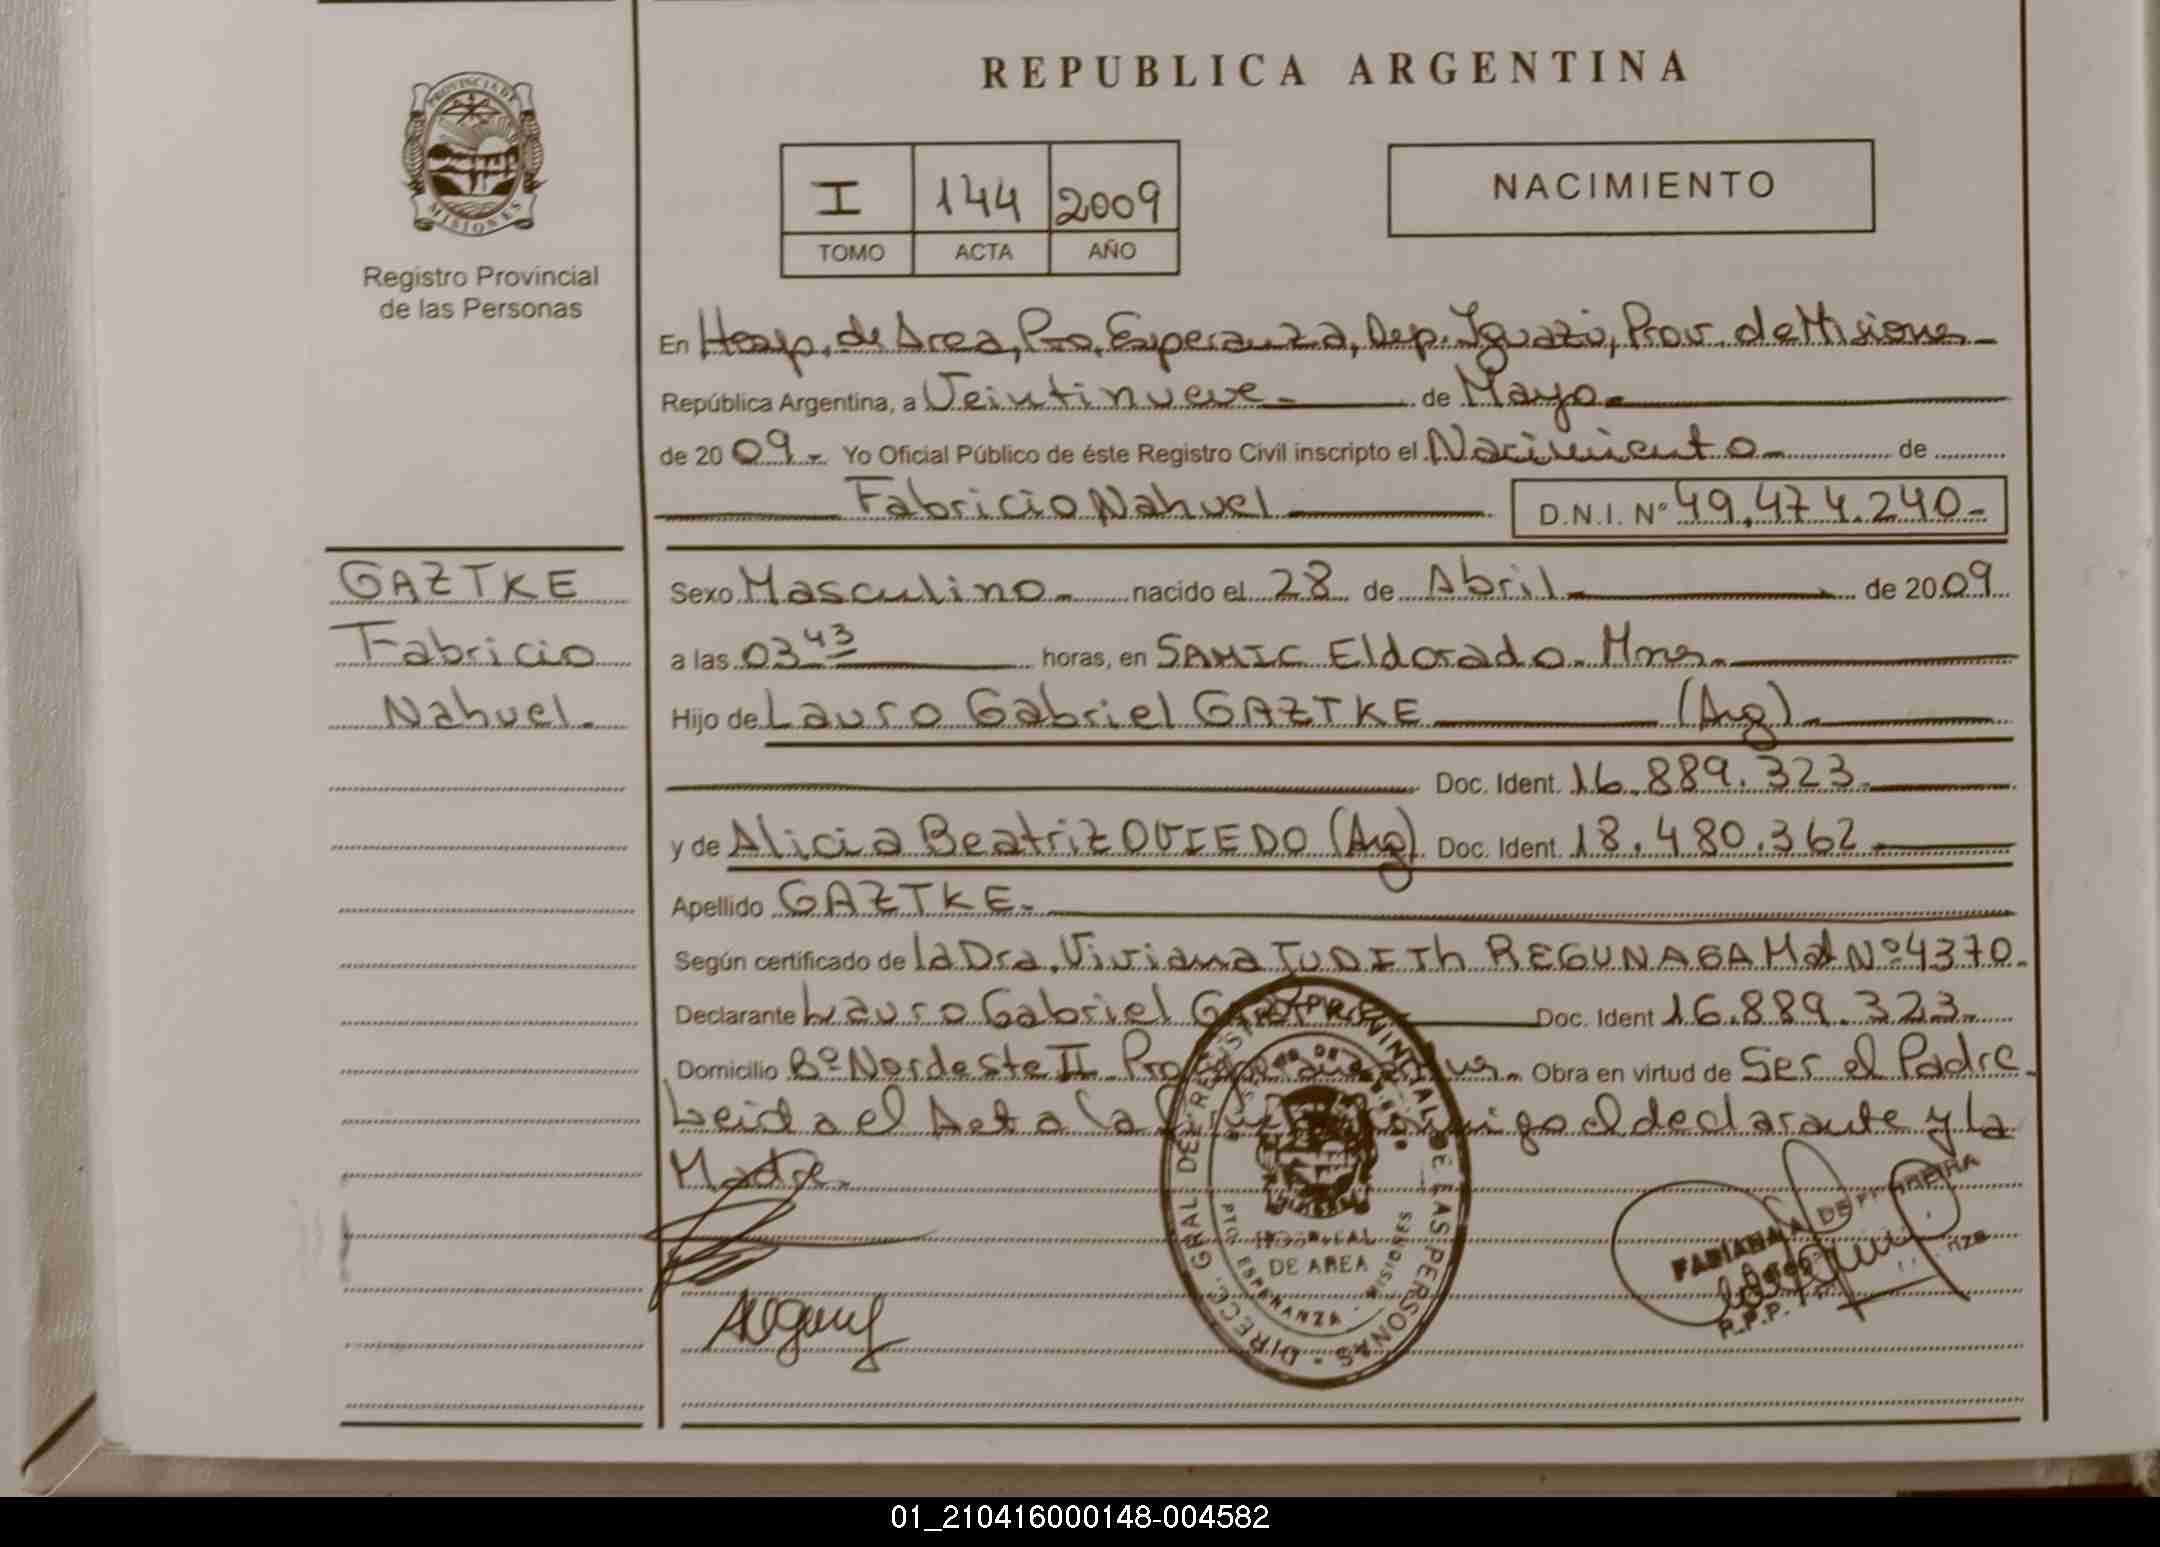 REPUBLICA ARGENTINA
PROVINCIA DE MISIONES
Registro Provincial
de las Personas
I 144 2009
TOMO ACTA AÑO
NACIMIENTO
En Hosp. de Area, Pto. Esperanza, Dep. Iguazú, Prov. de Misiones
República Argentina, a Veintinueve de Mayo
de 2009 Yo Oficial Público de éste Registro Civil inscripto el Nacimiento de
Fabricio Nahuel D.N.I. Nº 49.474.240
GAZTKE
Fabricio
Nahuel.
Sexo Masculino nacido el 28 de Abril de 2009
a las 03 43 horas, en SAMIC Eldorado. Mnes.
Hijo de Lauro Gabriel GAZTKE (Arg)
Doc. Ident. 16.889.323
y de Alicia Beatriz OVIEDO (Arg) Doc. Ident. 18.480.362
Apellido GAZTKE.
Según certificado de la Dra. Viviana JUDITh REGUNAGA Mat Nº 4370.
Declarante Lauro Gabriel Doc. Ident 16.889.323
Domicilio Bº Nordeste II Obra en virtud de Ser el Padre
Leida el Acta la el declarante y la
Madre.
DIRECC. GRAL DE REGISTRO PROVINCIAL DE LAS PERSONAS
HOSPITAL
DE AREA
PTO. ESPERANZA - MISIONES
FABIANA
R.P.P.
01_210416000148-004582